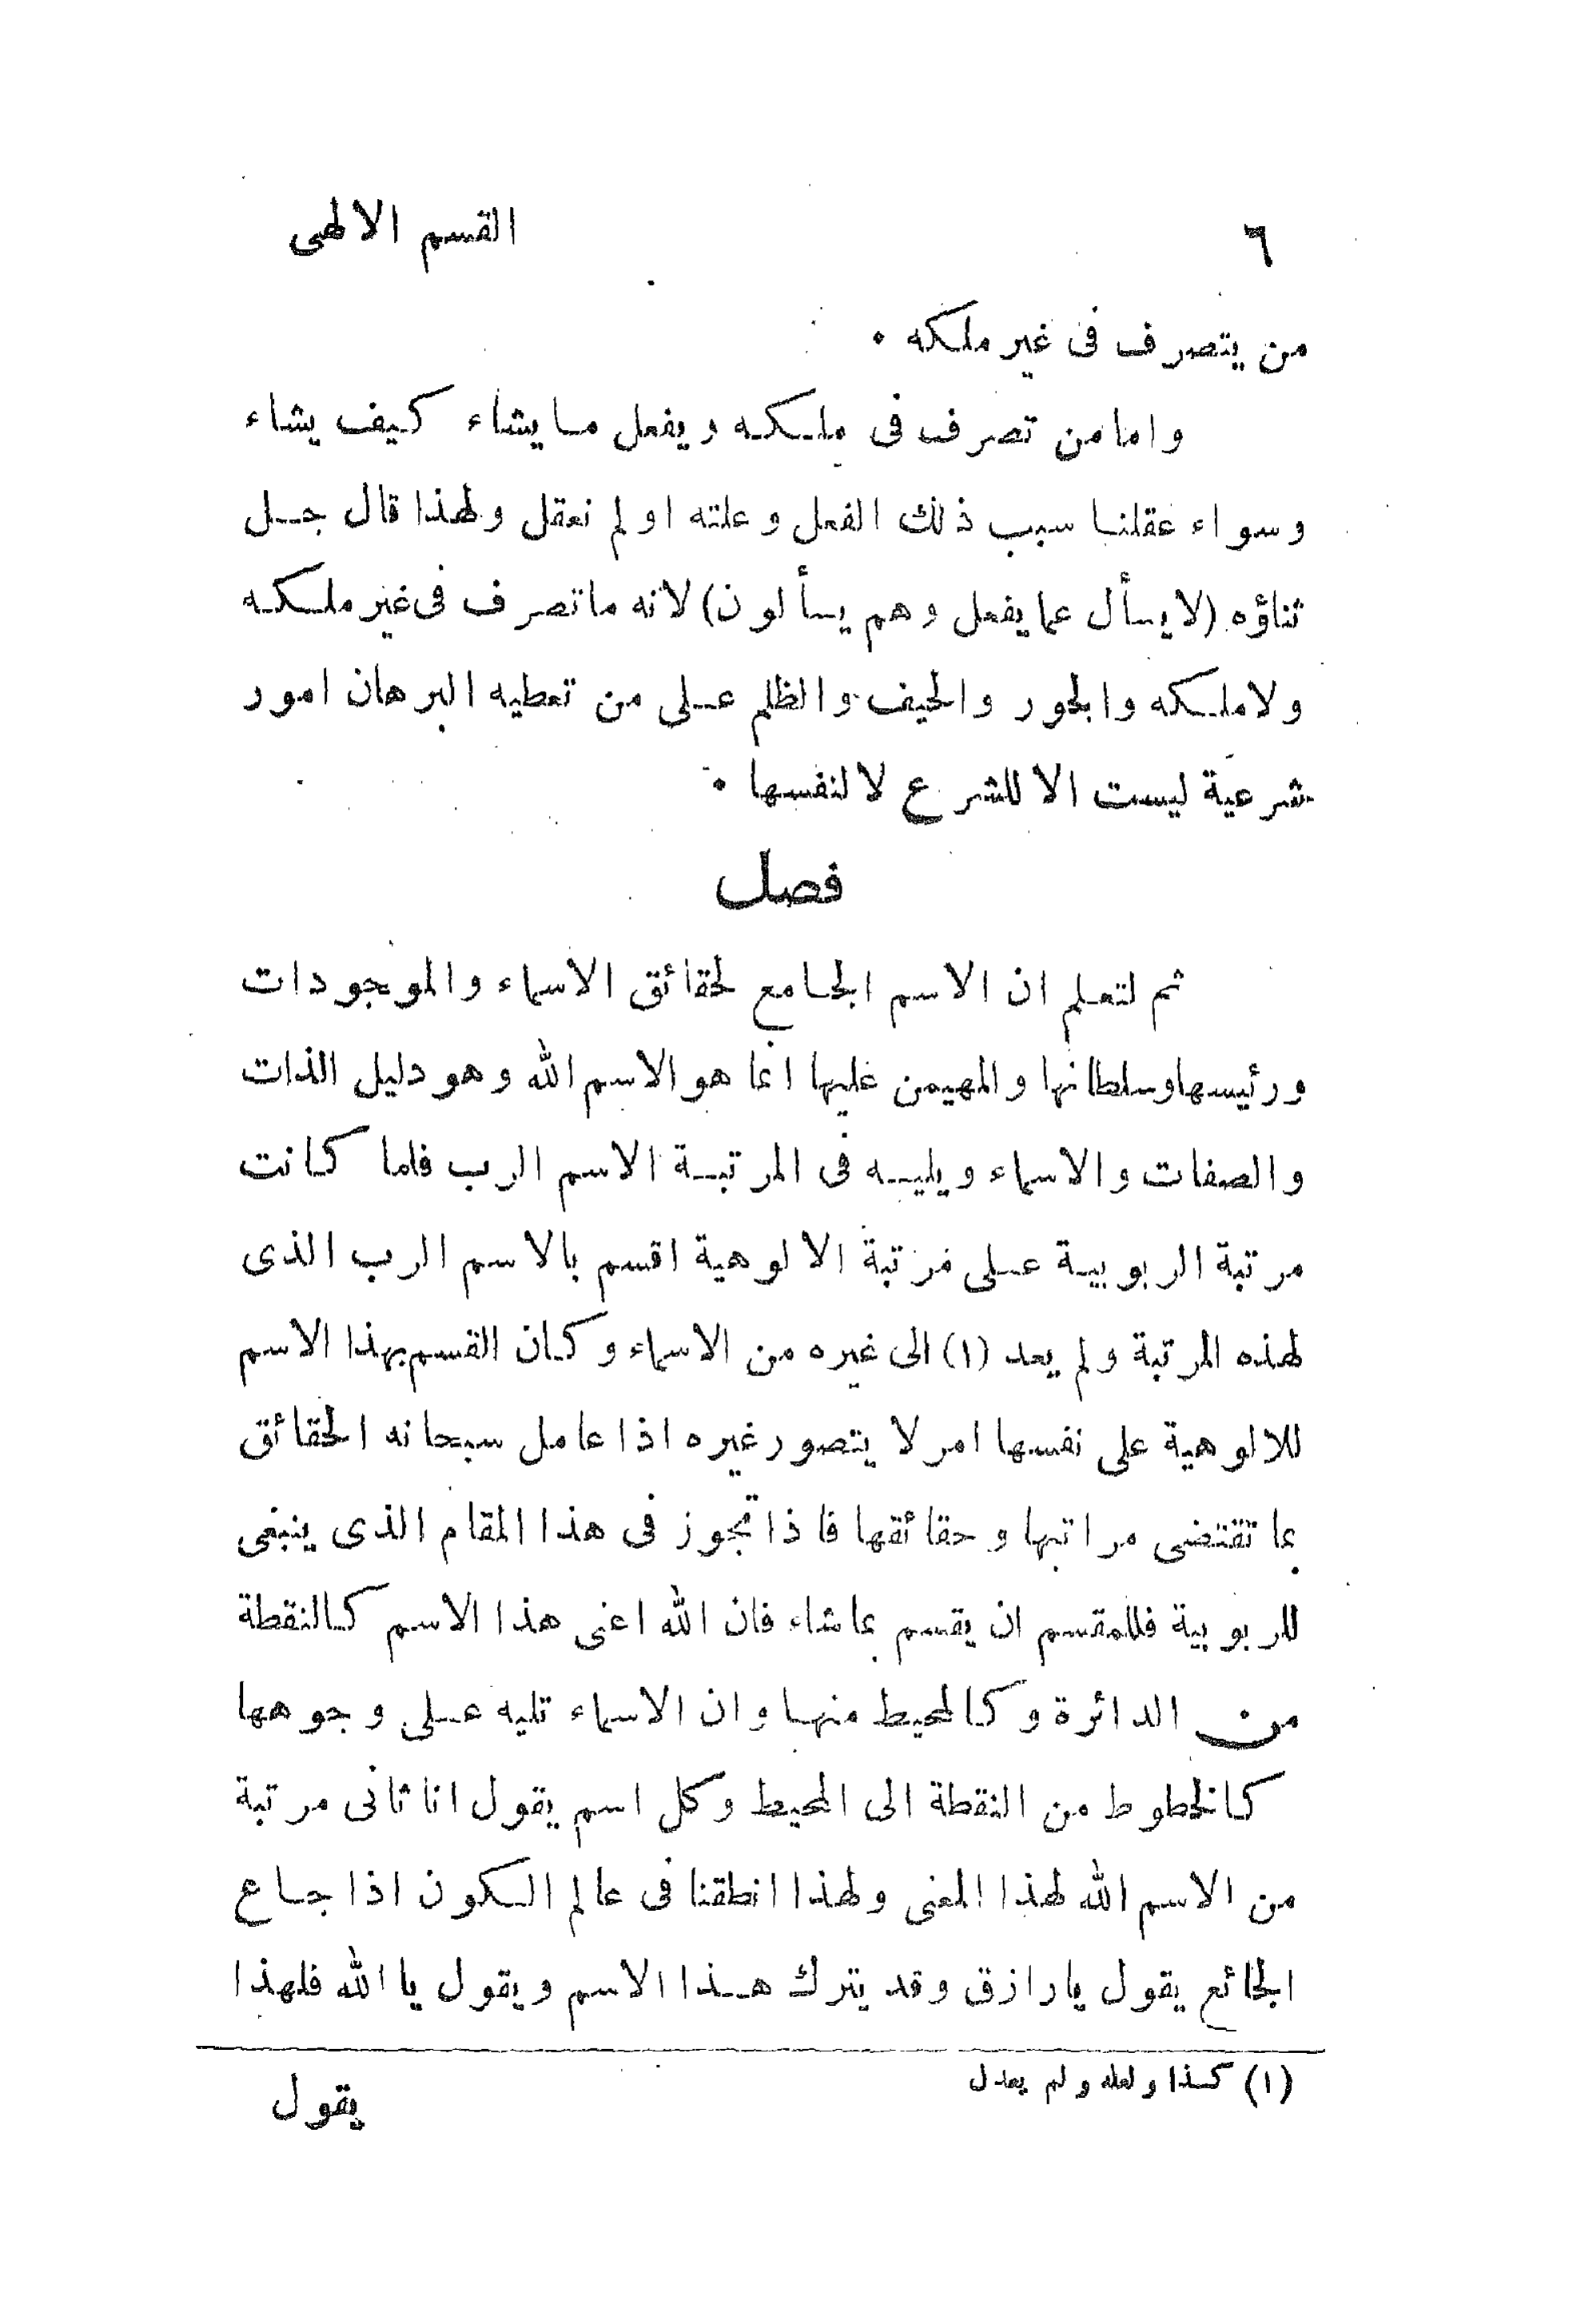 ٦ القسم الالهى
من يتصرف فى غير ملكه ٠
واما من تصرف فى ملكه ويفعل ما يشاء كيف يشاء
وسواء عقلنا سبب ذلك الفعل وعلته او لم نعقل ولهذا قال جل
ثناؤه (لا يسأل عما يفعل وهم يسألون) لانه ما تصرف فى غير ملكه
ولا ملكه والجور والحيف والظلم على من تعطيه البرهان امور
شرعية ليست الا للشرع لا لنفسها ٠
فصل
ثم لتعلم ان الاسم الجامع لحقائق الاسماء والموجودات
ورئيسها وسلطانها والمهيمن عليها انما هو الاسم الله وهو دليل الذات
والصفات والاسماء ويليه فى المرتبة الاسم الرب فلما كانت
مرتبة الربوبية على مرتبة الالوهية اقسم بالاسم الرب الذى
لهذه المرتبة ولم يعد (١) الى غيره من الاسماء وكان القسم بهذا الاسم
للالوهية على نفسها امر لا يتصور غيره اذا عامل سبحانه الحقائق
بما تقتضى مراتبها وحقائقها فاذا تجوز فى هذا المقام الذى ينبغى
للربوبية فللمقسم ان يقسم بما شاء فان الله اعنى هذا الاسم كالنقطة
من الدائرة وكالمحيط منها وان الاسماء تليه على وجوهها
كالخطوط من النقطة الى المحيط وكل اسم يقول انا ثانى مرتبة
من الاسم الله لهذا المعنى ولهذا انطقنا فى عالم الكون اذا جاع
الجائع يقول يا رازق وقد يترك هذا الاسم ويقول يا الله فلهذا
(١) كذا ولعله ولم يعدل
يقول